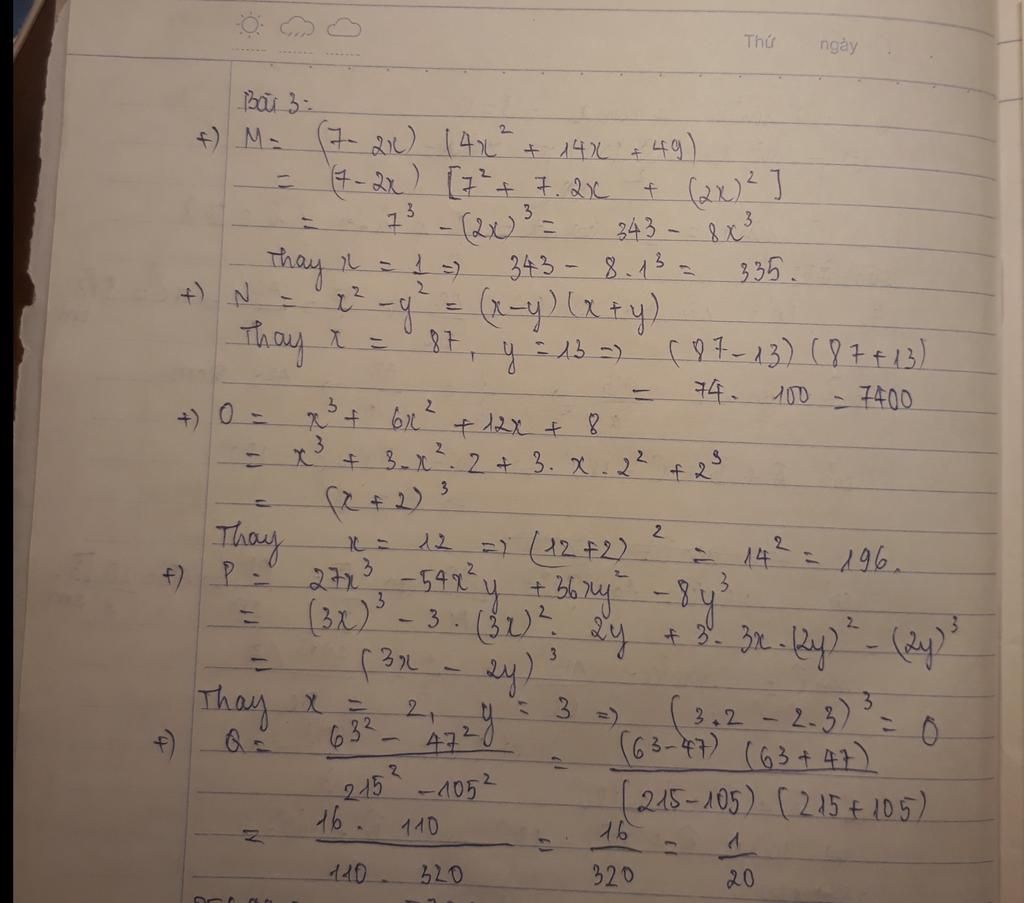 Thứ ngày
Bài 3:
+) M = (7 - 2x) (4x² + 14x + 49)
= (7 - 2x) [7² + 7.2x + (2x)²]
= 7³ - (2x)³ = 343 - 8x³
Thay x = 1 => 343 - 8.1³ = 335.
+) N = x² - y² = (x-y)(x+y)
Thay x = 87, y = 13 => (87-13)(87+13)
= 74. 100 = 7400
+) O = x³ + 6x² + 12x + 8
= x³ + 3.x².2 + 3.x.2² + 2³
= (x+2)³
Thay x = 12 => (12+2)² = 14² = 196.
+) P = 27x³ - 54x²y + 36xy² - 8y³
= (3x)³ - 3.(3x)².2y + 3.3x.(2y)² - (2y)³
= (3x - 2y)³
Thay x = 2, y = 3 => (3.2 - 2.3)³ = 0
+) Q = 63² - 47² / 215² - 105² = (63-47) (63+47) / (215-105) (215+105)
= 16. 110 / 110. 320 = 16 / 320 = 1 / 20